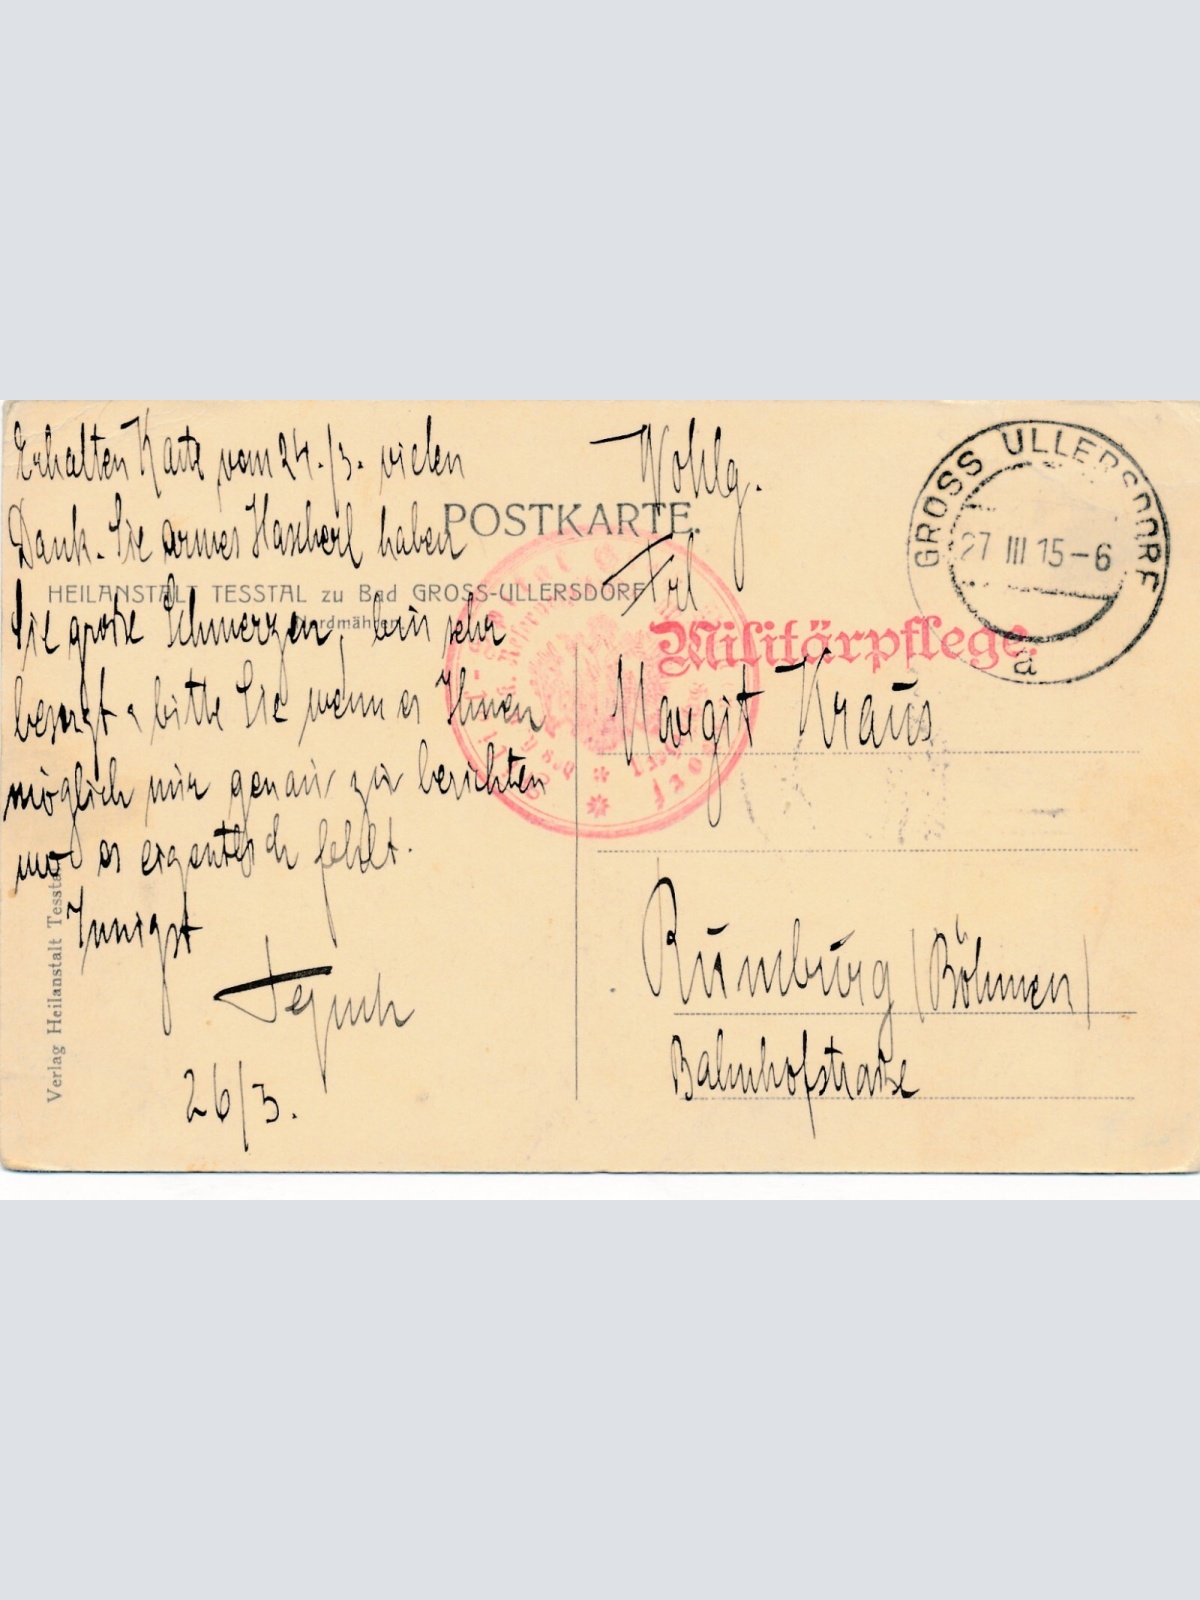 Erhalten Karte vom 24./3. vielen
Dank. Sie armes Hascherl haben
Sie große Schmerzen, bin sehr
besorgt & bitte Sie wenn es Ihnen
möglich mir genau zu berichten
wo es eigentlich fehlt.
Innigst
26/3.
POSTKARTE.
HEILANSTALT TESSTAL zu Bad GROSS-ULLERSDORF
Nordmähren
Verlag Heilanstalt Tesstal
Wohlg.
Frl
Margit Kraus
Rumburg (Böhmen)
Bahnhofstraße
Militärpflege.
GROSS ULLERSDORF
27 III 15-6
a